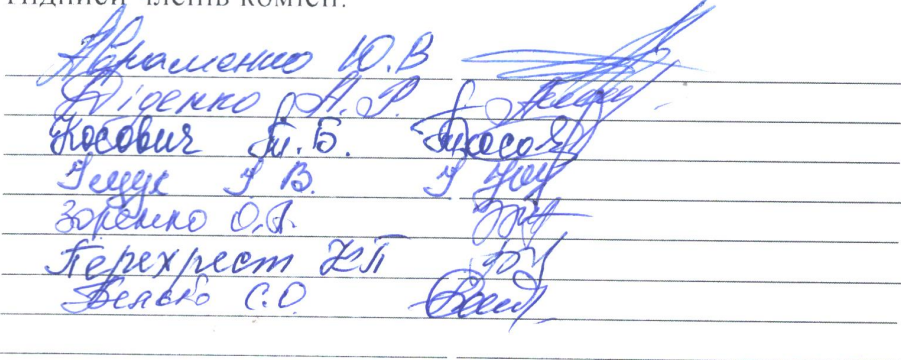 Підписи членів комісії:
Авраменко Ю.В
Діденко А.Р.
Косович Т.Б.
Іщук І В.
Зоренко О.А.
Перехрест КП
Белько С.О